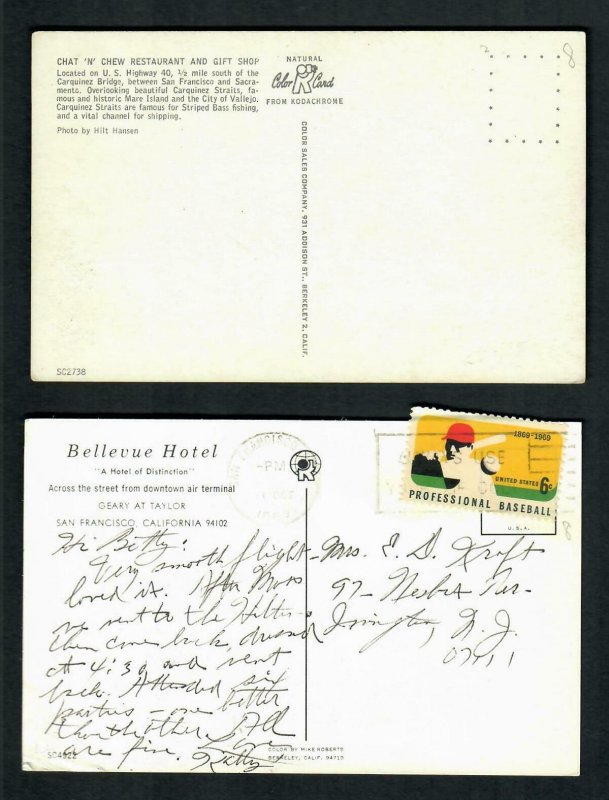 CHAT 'N' CHEW RESTAURANT AND GIFT SHOP
Located on U. S. Highway 40, 1/2 mile south of the
Carquinez Bridge, between San Francisco and Sacra-
mento. Overlooking beautiful Carquinez Straits, fa-
mous and historic Mare Island and the City of Vallejo.
Carquinez Straits are famous for Striped Bass fishing,
and a vital channel for shipping.
Photo by Hilt Hansen
NATURAL
Color Card
FROM KODACHROME
COLOR SALES COMPANY, 931 ADDISON ST., BERKELEY 2, CALIF.
2
8
SC2738
Bellevue Hotel
"A Hotel of Distinction"
Across the street from downtown air terminal
GEARY AT TAYLOR
SAN FRANCISCO, CALIFORNIA 94102
FRANCISCO
PM
USE
1869-1969
UNITED STATES 6c
PROFESSIONAL BASEBALL
U.S.A.
8
Hi Betty:
Very smooth flight-
loved it. After Mass
we went to the Hilton -
then came back, dressed
at 4:30 and went
back. Attended six
parties - one better
than the other. All
are fine. Love
Kitty
Mrs. E. D. Kraft
97- Nesbit Ter-
Irvington, N.J.
07411
SC4522
COLOR BY MIKE ROBERTS
BERKELEY, CALIF. 94710